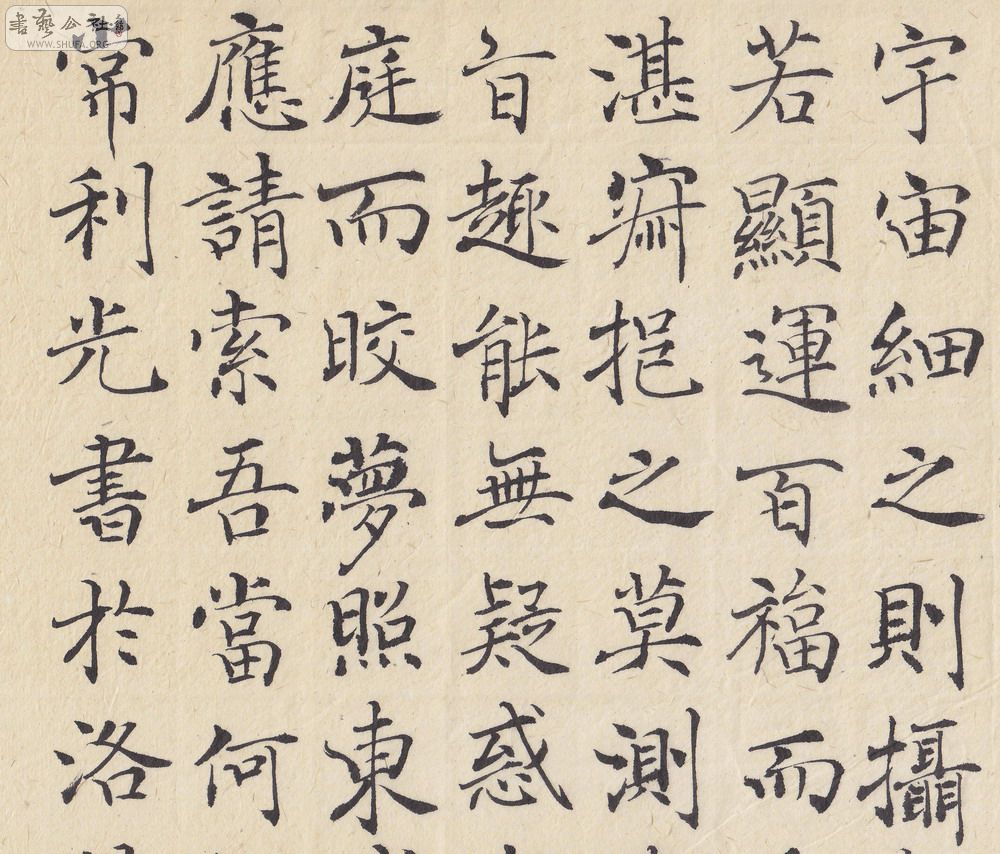 書藝公社
WWW.SHUFA.ORG
宇宙細之則攝
若顯運百福而
湛寂挹之莫測
旨趣能無疑惑
庭而晈夢照東
應請索吾當何
利光書於洛